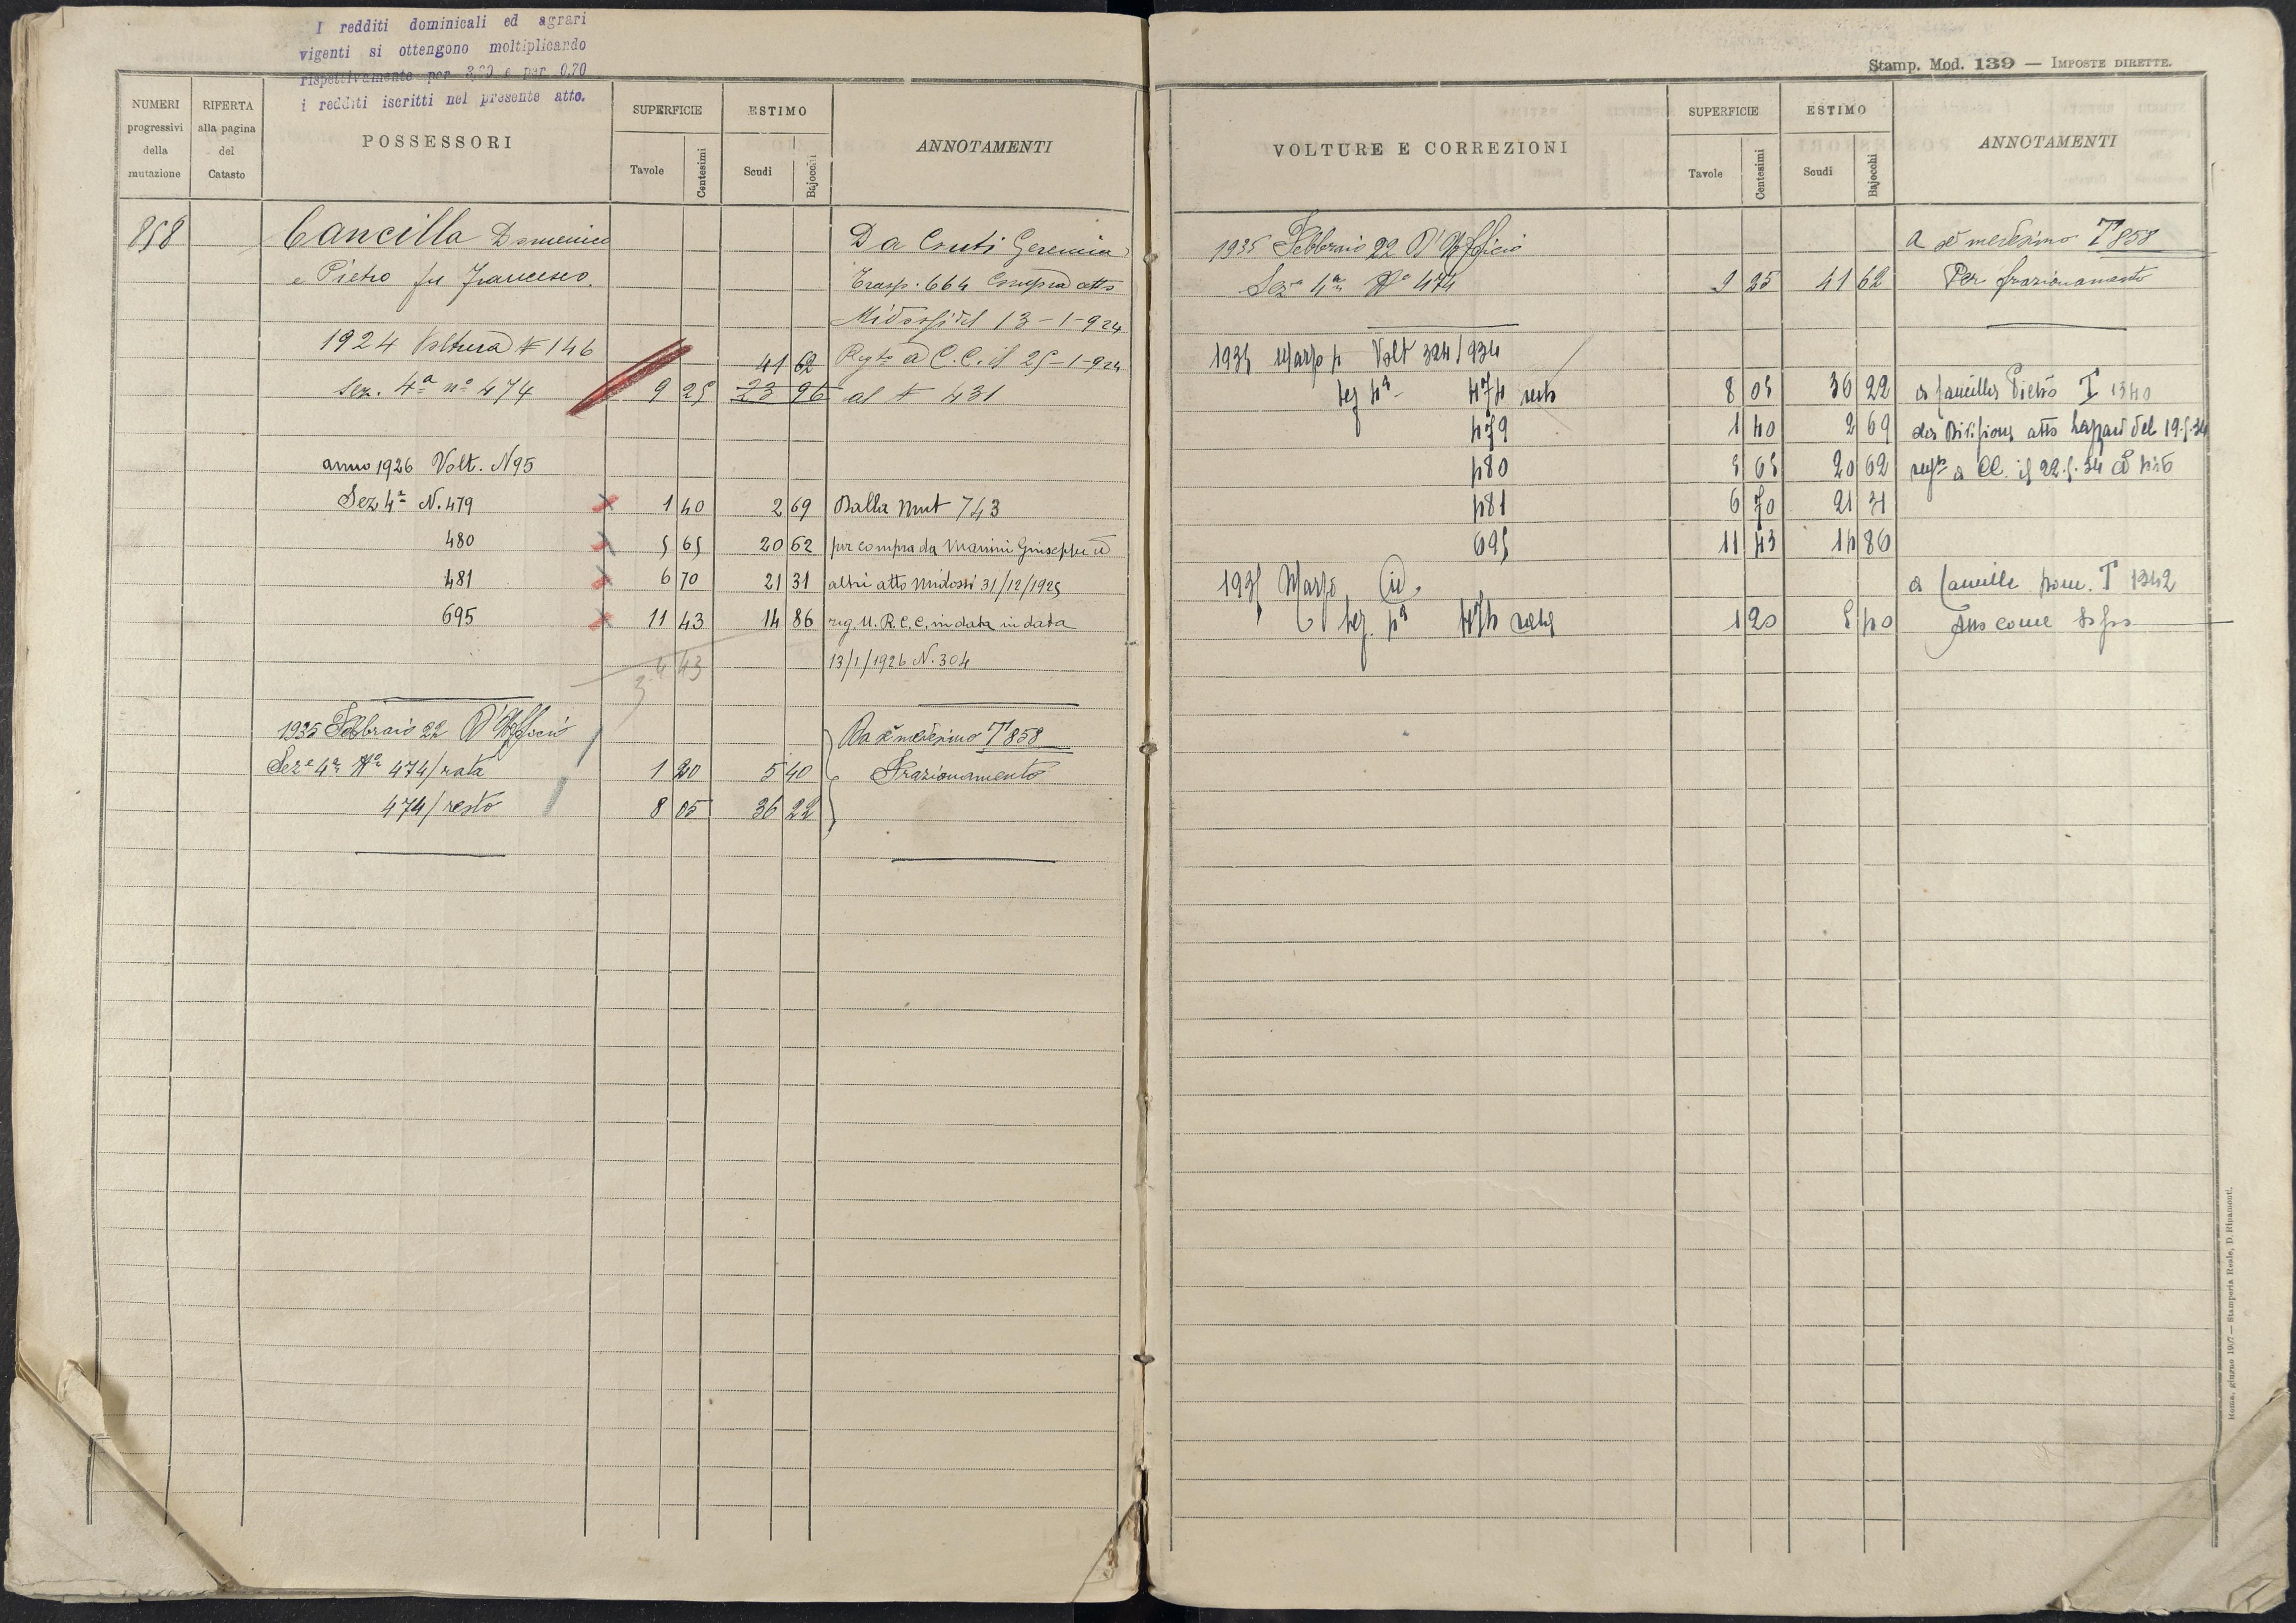 I redditi dominicali ed agrari
vigenti si ottengono moltiplicando
rispettivamente per 3,60 e per 0,70
i redditi iscritti nel presente atto.
NUMERI progressivi della mutazione
RIFERTA alla pagina del Catasto
POSSESSORI
SUPERFICIE
Tavole Centesimi
ESTIMO
Scudi Bajocchi
ANNOTAMENTI
858 Cancilla Domenico Da Conti Geremia
e Pietro fu Francesco. Trasp. 664 Compra atto
Midossi del 13-1-924
1924 Voltura N 146 41 62 Regto a C.C. il 25-1-924
Sez. 4a no 474 9 25 23 96 al N 431
anno 1926 Volt. N 95
Sez 4a N. 479 1 40 2 69 Dalla Mut 743
480 5 65 20 62 per compra da Manini Giuseppe ed
481 6 70 21 31 altri atto Midossi 31/12/1925
695 11 43 14 86 reg. U.R.C.C. in data in data
13/1/1926 N. 304
1935 Febbraio 22 D'Ufficio Da sè medesimo T 858
Seze 4a No 474/rata 1 20 5 40 Frazionamento
474/resto 8 05 36 22
Stamp. Mod. 139 — IMPOSTE DIRETTE.
VOLTURE E CORREZIONI
SUPERFICIE
Tavole Centesimi
ESTIMO
Scudi Bajocchi
ANNOTAMENTI
1935 Febbraio 22 D'Ufficio A sè medesimo T 858
Seze 4a No 474 9 25 41 62 Per frazionamento
1935 Marzo 4 Volt 324/934
Sez 4a 474 resto 8 05 36 22 a Cancilla Pietro T 1340
479 1 40 2 69 Divisione atto del 19.5.34
480 5 65 20 62 regto a CC. il 22.5.34
481 6 70 21 31
695 11 43 14 86
1935 Marzo id. a Cancilla Dom. T 1342
Sez. 4a 474 rata 1 20 5 40 Atto come sopra
Roma, giugno 1907 — Stamperia Reale, D. Ripamonti.